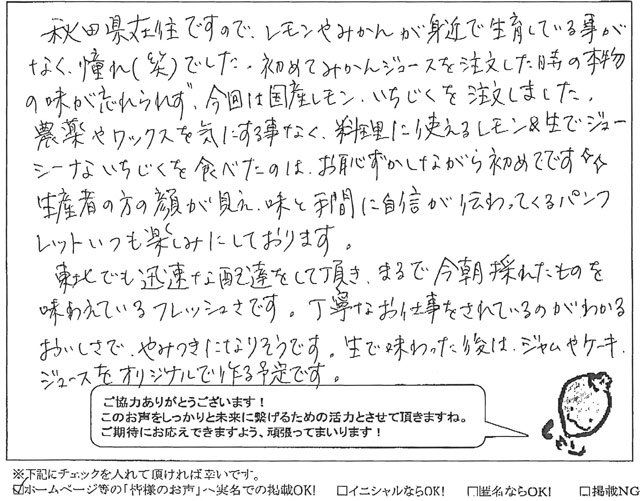 秋田県在住ですので、レモンやみかんが身近で生育している事が
なく、憧れ(笑)でした。初めてみかんジュースを注文した時の本物
の味が忘れられず、今回は国産レモン、いちじくを注文しました。
農薬やワックスを気にする事なく、料理に使えるレモン&生でジュー
シーないちじくを食べたのは、お恥ずかしながら初めてです☆☆
生産者の方の顔が見え、味と手間に自信が伝わってくるパンフ
レットいつも楽しみにしております。
東北でも迅速な配達をして頂き、まるで今朝採れたものを
味わえているフレッシュさです。丁寧なお仕事をされているのがわかる
おいしさで、やみつきになりそうです。生で味わった後は、ジャムやケーキ、
ジュースをオリジナルで作る予定です。
ご協力ありがとうございます!
このお声をしっかりと未来に繋げるための活力とさせて頂きますね。
ご期待にお応えできますよう、頑張ってまいります!
※下記にチェックを入れて頂ければ幸いです。
☑ホームページ等の「皆様のお声」へ実名での掲載OK! □イニシャルならOK! □匿名ならOK! □掲載NG